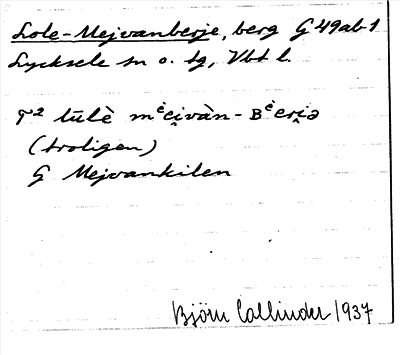 Lole-Mejvanberje, berg G 49ab-1
Lycksele sn o. tg, Vbt l.
T² tūlè mᵉi̯vàn-Bᵉri̯ə
(troligen)
G Mejvankilen
Björn Collinder 1937